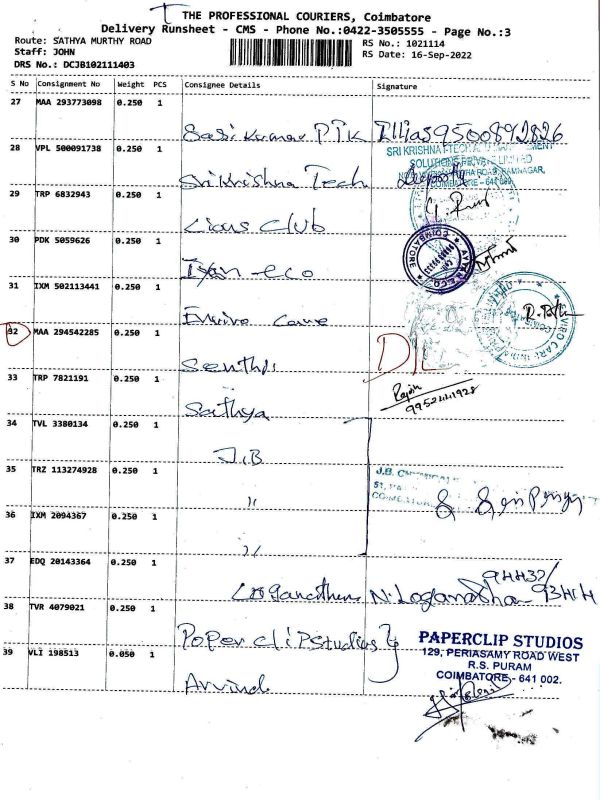 THE PROFESSIONAL COURIERS, Coimbatore
Delivery Runsheet - CMS - Phone No.:0422-3505555 - Page No.:3
Route: SATHYA MURTHY ROAD
Staff: JOHN
DRS No.: DCJB102111403
RS No.: 1021114
RS Date: 16-Sep-2022
S No Consignment No Weight PCS Consignee Details Signature
27 MAA 293773098 0.250 1
Sasi Kumar PTK 9500892826
28 VPL 500091738 0.250 1
SRI KRISHNA
SOLUTIONS PRIVATE LIMITED
RAMNAGAR,
COIMBATORE - 641
Sri Krishna Tech
29 TRP 6832943 0.250 1
Lions Club
30 PDK 5059626 0.250 1
COIMBATORE
-eco
31 IXM 502113441 0.250 1
Enviro Care
ENVIRO CARE
32 MAA 294542285 0.250 1
D/L
33 TRP 7821191 0.250 1
9952441928
Sathya
34 TVL 3380134 0.250 1
J.B
35 TRZ 113274928 0.250 1
J.B.
COIMBATORE
"
36 IXM 2094367 0.250 1
"
37 EDQ 20143364 0.250 1
94437/
Loganathan N. Loganathan
38 TVR 4079021 0.250 1
Paper clip studios
39 VLI 198513 0.050 1
PAPERCLIP STUDIOS
129, PERIASAMY ROAD WEST
R.S. PURAM
COIMBATORE - 641 002.
Arvind